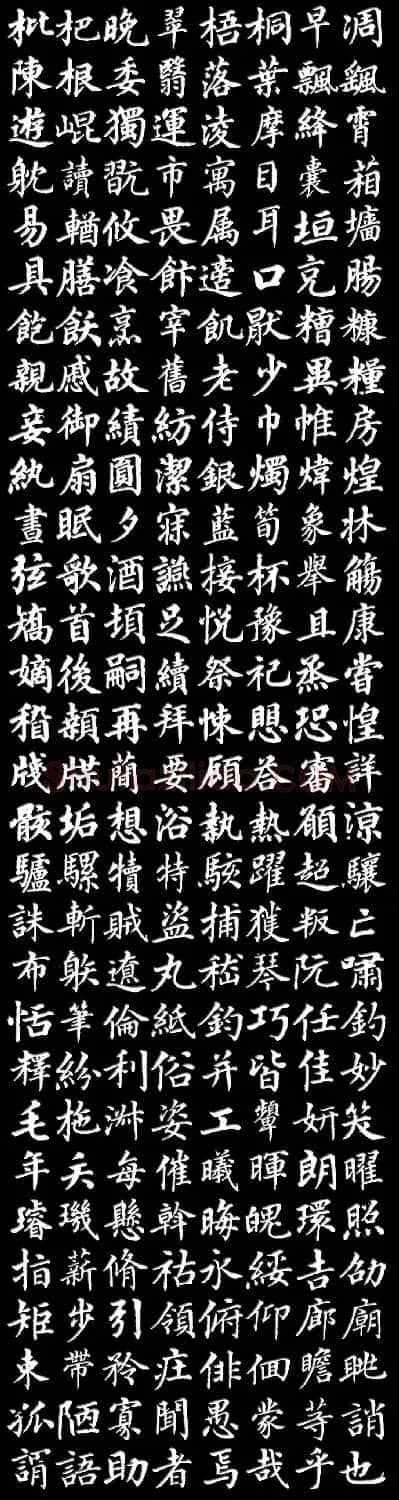 枇杷晚翠梧桐早凋
陳根委翳落葉飄颻
遊崐獨運淩摩絳霄
躭讀翫市寓目囊箱
易輶攸畏属耳垣墻
具膳飡飰適口充腸
飽飫烹宰飢猒糟糠
親戚故舊老少異糧
妾御績紡侍巾帷房
紈扇圓潔銀燭煒煌
晝眠夕寐藍筍象牀
弦歌酒讌接杯舉觴
矯首頓足悅豫且康
嫡後嗣續祭祀蒸嘗
稽顙再拜悚懼恐惶
牋牒簡要顧答審詳
骸垢想浴執熱願涼
驢騾犢特駭躍超驤
誅斬賊盜捕獲叛亡
布射遼丸嵇琴阮嘯
恬筆倫紙鈞巧任釣
釋紛利俗并皆佳妙
毛施淑姿工顰妍笑
年矢每催曦暉朗曜
璿璣懸斡晦魄環照
指薪脩祜永綏吉劭
矩步引領俯仰廊廟
束帶矜莊徘徊瞻眺
孤陋寡聞愚蒙等誚
謂語助者焉哉乎也